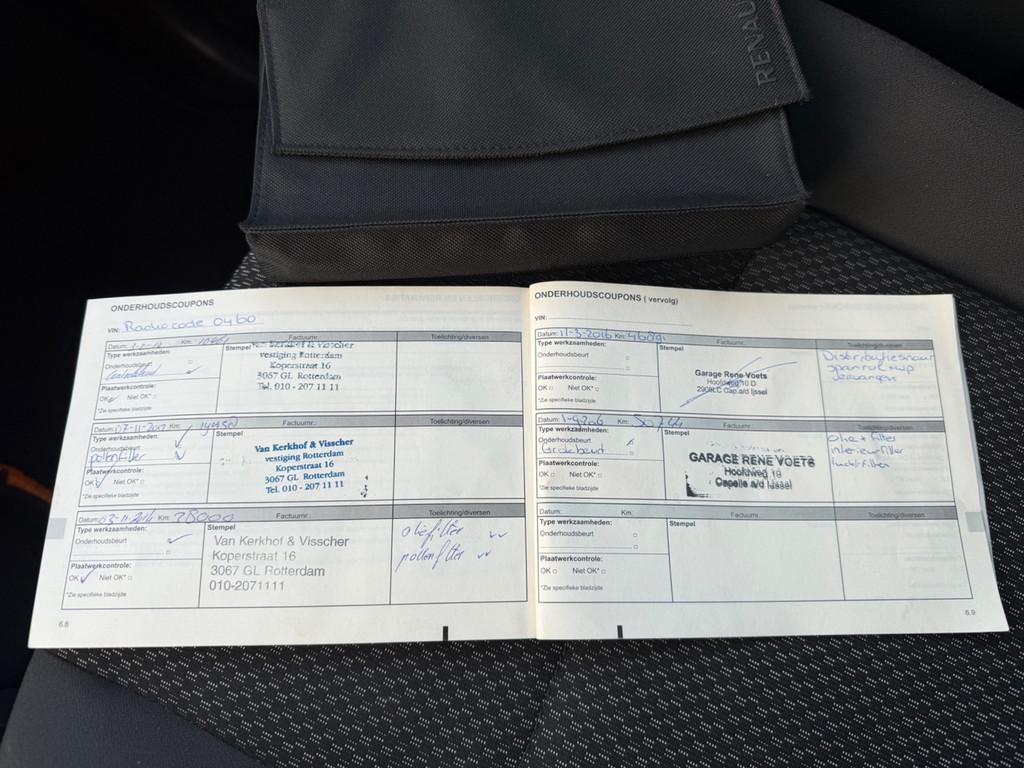 RENAU
ONDERHOUDSCOUPONS
VIN: Radiocode 0460
Datum: Km: Factuurnr.: Toelichting/diversen
Type werkzaamheden:
Stempel
Onderhoudsbeurt
Van Kerkhof & Visscher
vestiging Rotterdam
Koperstraat 16
3067 GL Rotterdam
Tel. 010 - 207 11 11
Plaatwerkcontrole:
OK Niet OK*
*Zie specifieke bladzijde
Datum: Km: Factuurnr.: Toelichting/diversen
Type werkzaamheden:
Stempel
Onderhoudsbeurt
pollenfilter
Van Kerkhof & Visscher
vestiging Rotterdam
Koperstraat 16
3067 GL Rotterdam
Tel. 010 - 207 11 11
Plaatwerkcontrole:
OK Niet OK*
*Zie specifieke bladzijde
Datum: 03-11-2014 Km: 38000 Factuurnr.: Toelichting/diversen
Type werkzaamheden:
Stempel
Onderhoudsbeurt
Van Kerkhof & Visscher
Koperstraat 16
3067 GL Rotterdam
010-2071111
oliefilter
pollenfilter
Plaatwerkcontrole:
OK Niet OK*
*Zie specifieke bladzijde
6.8
ONDERHOUDSCOUPONS ( vervolg)
VIN:
Datum: 11-3-2016 Km: Factuurnr.: Toelichting/diversen
Type werkzaamheden:
Stempel
Onderhoudsbeurt
Garage Rene Voets
Hoofdweg 10 D
2908LC Cap.a/d Ijssel
Distributieriem
vervangen
Plaatwerkcontrole:
OK Niet OK*
*Zie specifieke bladzijde
Datum: Km: 50744 Factuurnr.: Toelichting/diversen
Type werkzaamheden:
Stempel
Onderhoudsbeurt
Grote beurt
GARAGE RENE VOETS
Hoofdweg 10
Capelle a/d Ijssel
olie + filter
interieurfilter
luchtfilter
Plaatwerkcontrole:
OK Niet OK*
*Zie specifieke bladzijde
Datum: Km: Factuurnr.: Toelichting/diversen
Type werkzaamheden:
Stempel
Onderhoudsbeurt
Plaatwerkcontrole:
OK Niet OK*
*Zie specifieke bladzijde
6.9